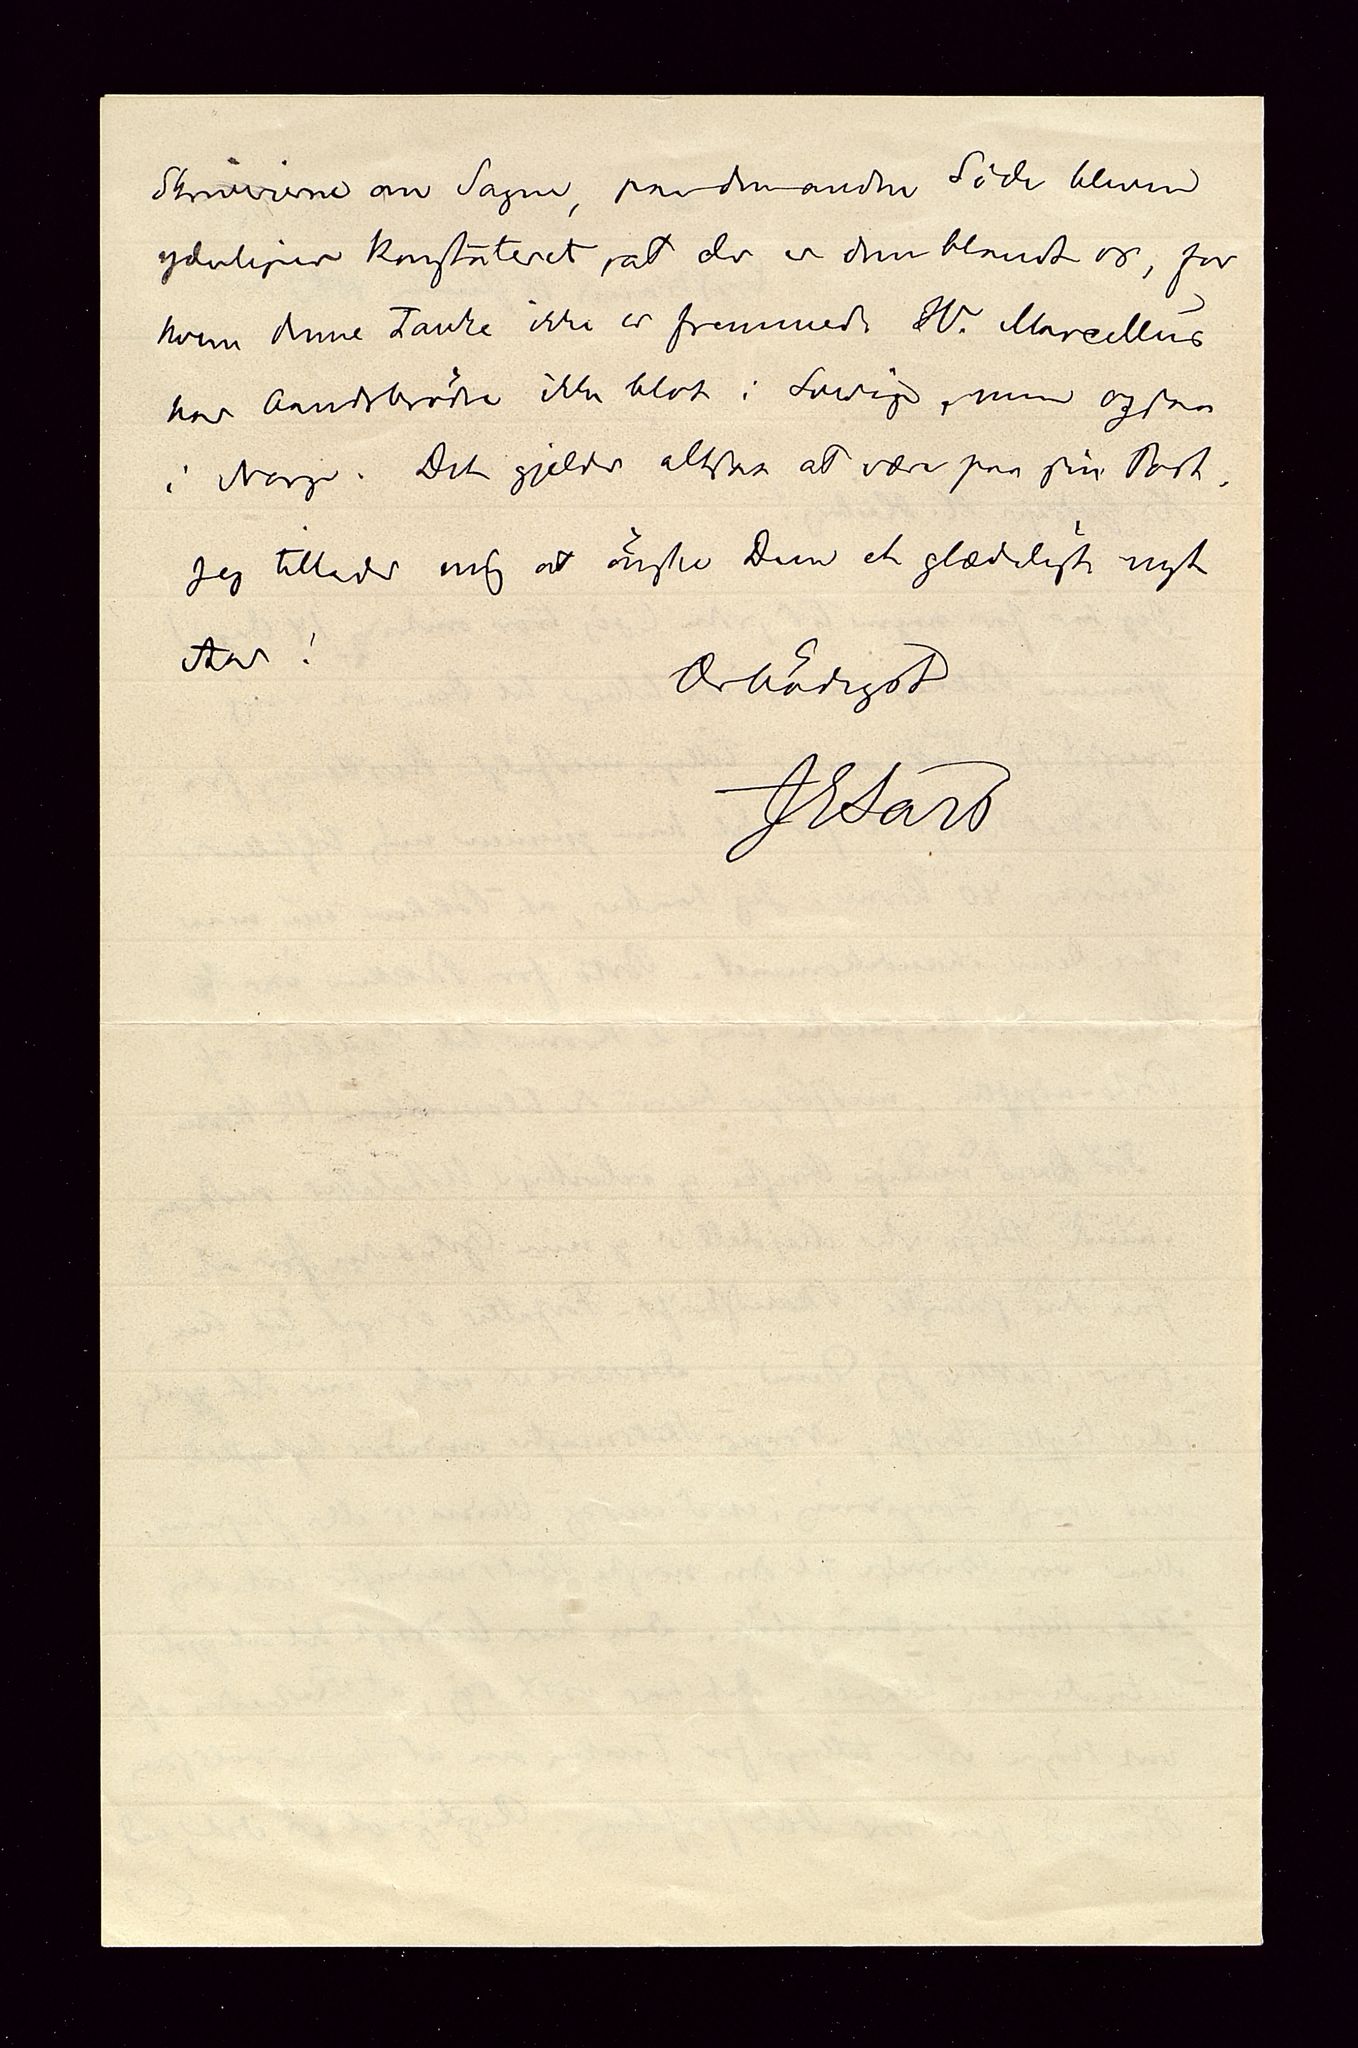 Skriverierne om Sagen, paa den anden Side bleven
yderligere konstateret, at der er dem blandt os, for
hvem denne Tanke ikke er fremmed. Hr. Marcellus
har Aandsbrödre ikke blot i Sverige, men ogsaa
i Norge. Det gjelder altsaa at være paa sin Post.
Jeg tillader mig at önske Dem et glædeligt nyt
Aar!
Ærbödigst
J E Sars